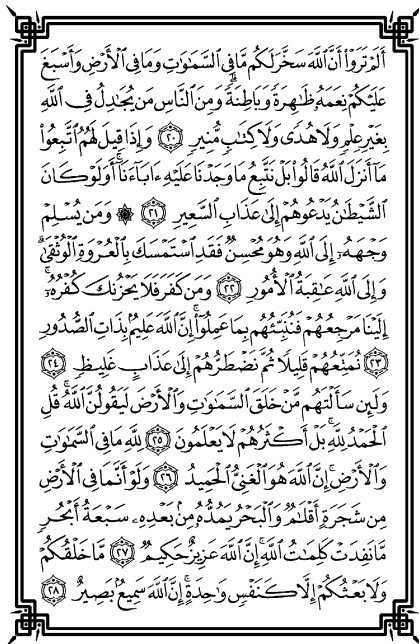 أَلَمْ تَرَوْا۟ أَنَّ ٱللَّهَ سَخَّرَ لَكُم مَّا فِى ٱلسَّمَـٰوَٰتِ وَمَا فِى ٱلْأَرْضِ وَأَسْبَغَ
عَلَيْكُمْ نِعَمَهُۥ ظَـٰهِرَةً وَبَاطِنَةً ۗ وَمِنَ ٱلنَّاسِ مَن يُجَـٰدِلُ فِى ٱللَّهِ
بِغَيْرِ عِلْمٍ وَلَا هُدًى وَلَا كِتَـٰبٍ مُّنِيرٍ ۝٢٠ وَإِذَا قِيلَ لَهُمُ ٱتَّبِعُوا۟
مَآ أَنزَلَ ٱللَّهُ قَالُوا۟ بَلْ نَتَّبِعُ مَا وَجَدْنَا عَلَيْهِ ءَابَآءَنَآ ۚ أَوَلَوْ كَانَ
ٱلشَّيْطَـٰنُ يَدْعُوهُمْ إِلَىٰ عَذَابِ ٱلسَّعِيرِ ۝٢١ ۞ وَمَن يُسْلِمْ
وَجْهَهُۥٓ إِلَى ٱللَّهِ وَهُوَ مُحْسِنٌ فَقَدِ ٱسْتَمْسَكَ بِٱلْعُرْوَةِ ٱلْوُثْقَىٰ ۗ
وَإِلَى ٱللَّهِ عَـٰقِبَةُ ٱلْأُمُورِ ۝٢٢ وَمَن كَفَرَ فَلَا يَحْزُنكَ كُفْرُهُۥٓ ۚ
إِلَيْنَا مَرْجِعُهُمْ فَنُنَبِّئُهُم بِمَا عَمِلُوٓا۟ ۚ إِنَّ ٱللَّهَ عَلِيمٌۢ بِذَاتِ ٱلصُّدُورِ
۝٢٣ نُمَتِّعُهُمْ قَلِيلًا ثُمَّ نَضْطَرُّهُمْ إِلَىٰ عَذَابٍ غَلِيظٍ ۝٢٤
وَلَئِن سَأَلْتَهُم مَّنْ خَلَقَ ٱلسَّمَـٰوَٰتِ وَٱلْأَرْضَ لَيَقُولُنَّ ٱللَّهُ ۚ قُلِ
ٱلْحَمْدُ لِلَّهِ ۚ بَلْ أَكْثَرُهُمْ لَا يَعْلَمُونَ ۝٢٥ لِلَّهِ مَا فِى ٱلسَّمَـٰوَٰتِ
وَٱلْأَرْضِ ۚ إِنَّ ٱللَّهَ هُوَ ٱلْغَنِىُّ ٱلْحَمِيدُ ۝٢٦ وَلَوْ أَنَّمَا فِى ٱلْأَرْضِ
مِن شَجَرَةٍ أَقْلَـٰمٌ وَٱلْبَحْرُ يَمُدُّهُۥ مِنۢ بَعْدِهِۦ سَبْعَةُ أَبْحُرٍ
مَّا نَفِدَتْ كَلِمَـٰتُ ٱللَّهِ ۗ إِنَّ ٱللَّهَ عَزِيزٌ حَكِيمٌ ۝٢٧ مَّا خَلْقُكُمْ
وَلَا بَعْثُكُمْ إِلَّا كَنَفْسٍ وَٰحِدَةٍ ۗ إِنَّ ٱللَّهَ سَمِيعٌۢ بَصِيرٌ ۝٢٨